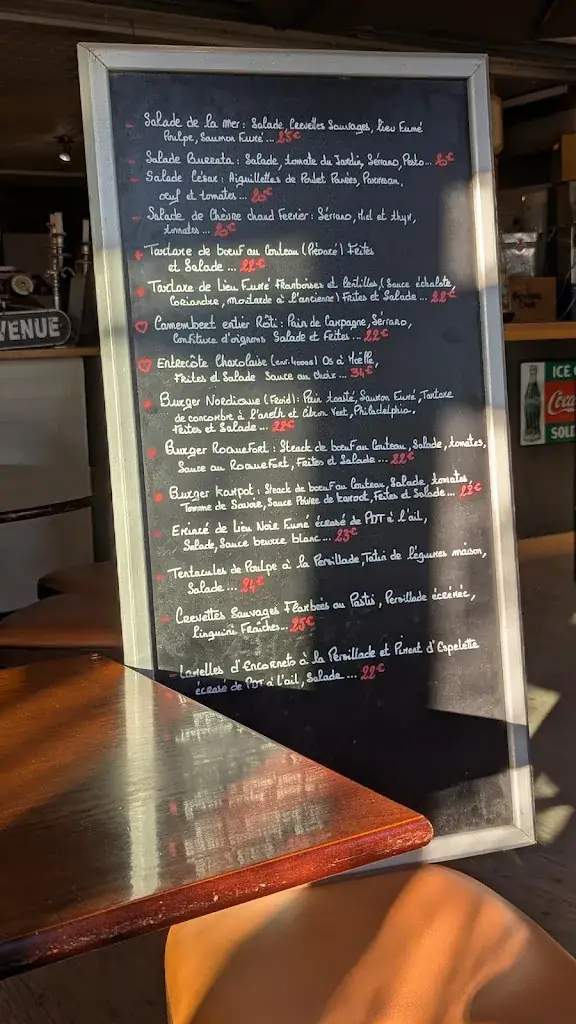 - Salade de la mer : Salade, Crevettes Sauvages, Lieu Fumé
Poulpe, Saumon Fumé ... 25€
- Salade Burrata : Salade, tomate du Jardin, Serrano, Pesto...
- Salade César : Aiguillettes de Poulet Panées, Parmesan,
oeuf et tomates ...
- Salade de Chèvre chaud Fermier : Serrano, Miel et thym,
tomates ...
Tartare de boeuf au Couteau (Préparé) Frites
et Salade ... 22€
Tartare de Lieu Fumé Framboises et lentilles, (Sauce échalote,
Coriandre, moutarde à l'ancienne) Frites et Salade ... 22€
♡ Camembert entier Rôti : Pain de Campagne, Serrano,
Confiture d'oignons Salade et Frites ... 22€
♡ Entrecôte Charolaise Os à Moëlle,
Frites et Salade Sauce au Choix ... 34€
Burger Nordique (Froid) : Pain toasté, Saumon Fumé, Tartare
de concombre à l'aneth et Citron Vert, Philadelphia,
Frites et Salade ... 22€
Burger Roquefort : Steack de boeuf au Couteau, Salade, tomates,
Sauce au Roquefort, Frites et Salade ... 22€
Burger Kampot : Steack de boeuf au Couteau, Salade, tomates,
Tomme de Savoie, Sauce Poivre de Kampot, Frites et Salade ... 22€
- Emincé de Lieu Noir Fumé écrasé de PDT à l'ail,
Salade, Sauce beurre blanc ... 23€
- Tentacules de Poulpe à la Persillade, Tatin de légumes maison,
Salade ... 24€
- Crevettes Sauvages Flambées au Pastis, Persillade écrémée,
Linguini Fraîches... 25€
- Lamelles d'Encornets à la Persillade et Piment d'Espelette
écrasé de PDT à l'ail, Salade ... 22€
VENUE
ICE
Coca
SOL